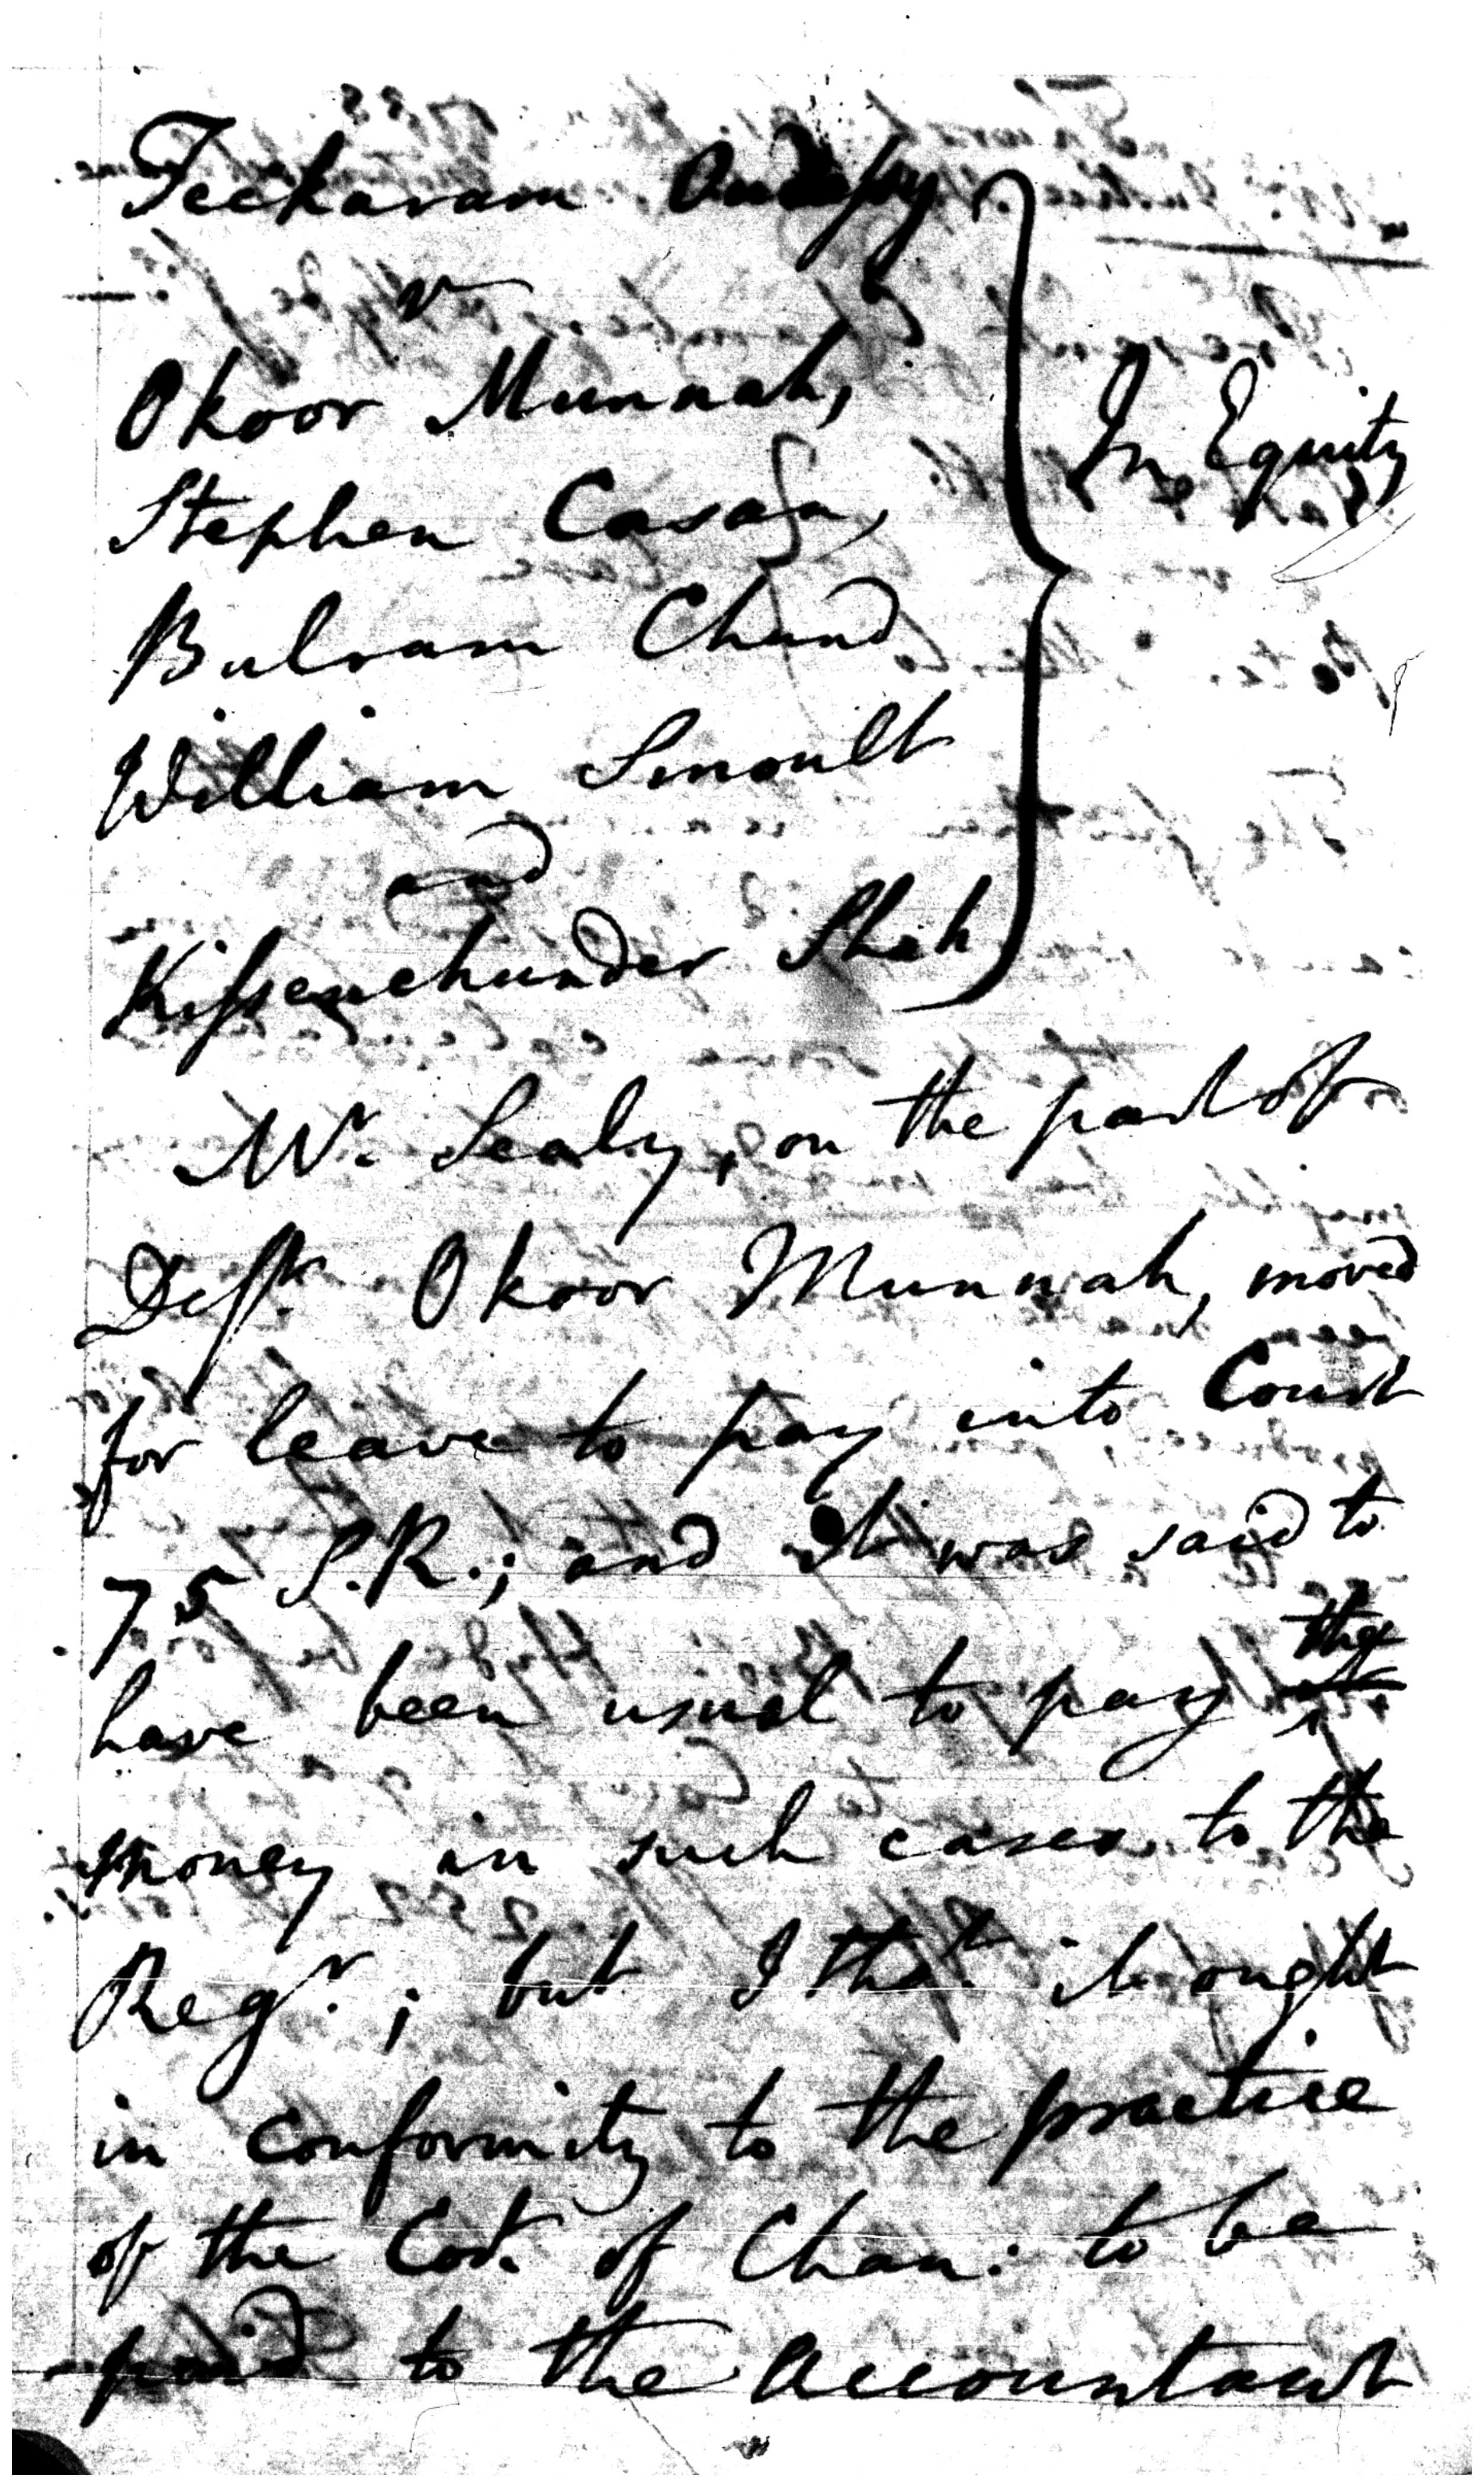 Teekaram
v
Okoor Munnah,
Stephen Casan,
Bulram Chand
William Smoult
and
Kissenchunder Shah
In Equity
Mr. Sealy, on the part of
Deft. Okoor Munnah, moved
for leave to pay into Court
75 S.R.; and It was said to
have been usual to pay the
money in such cases to the
Regr.; but I tho't it ought
in conformity to the practice
of the Cot. of Chan: to be
paid to the Accountant